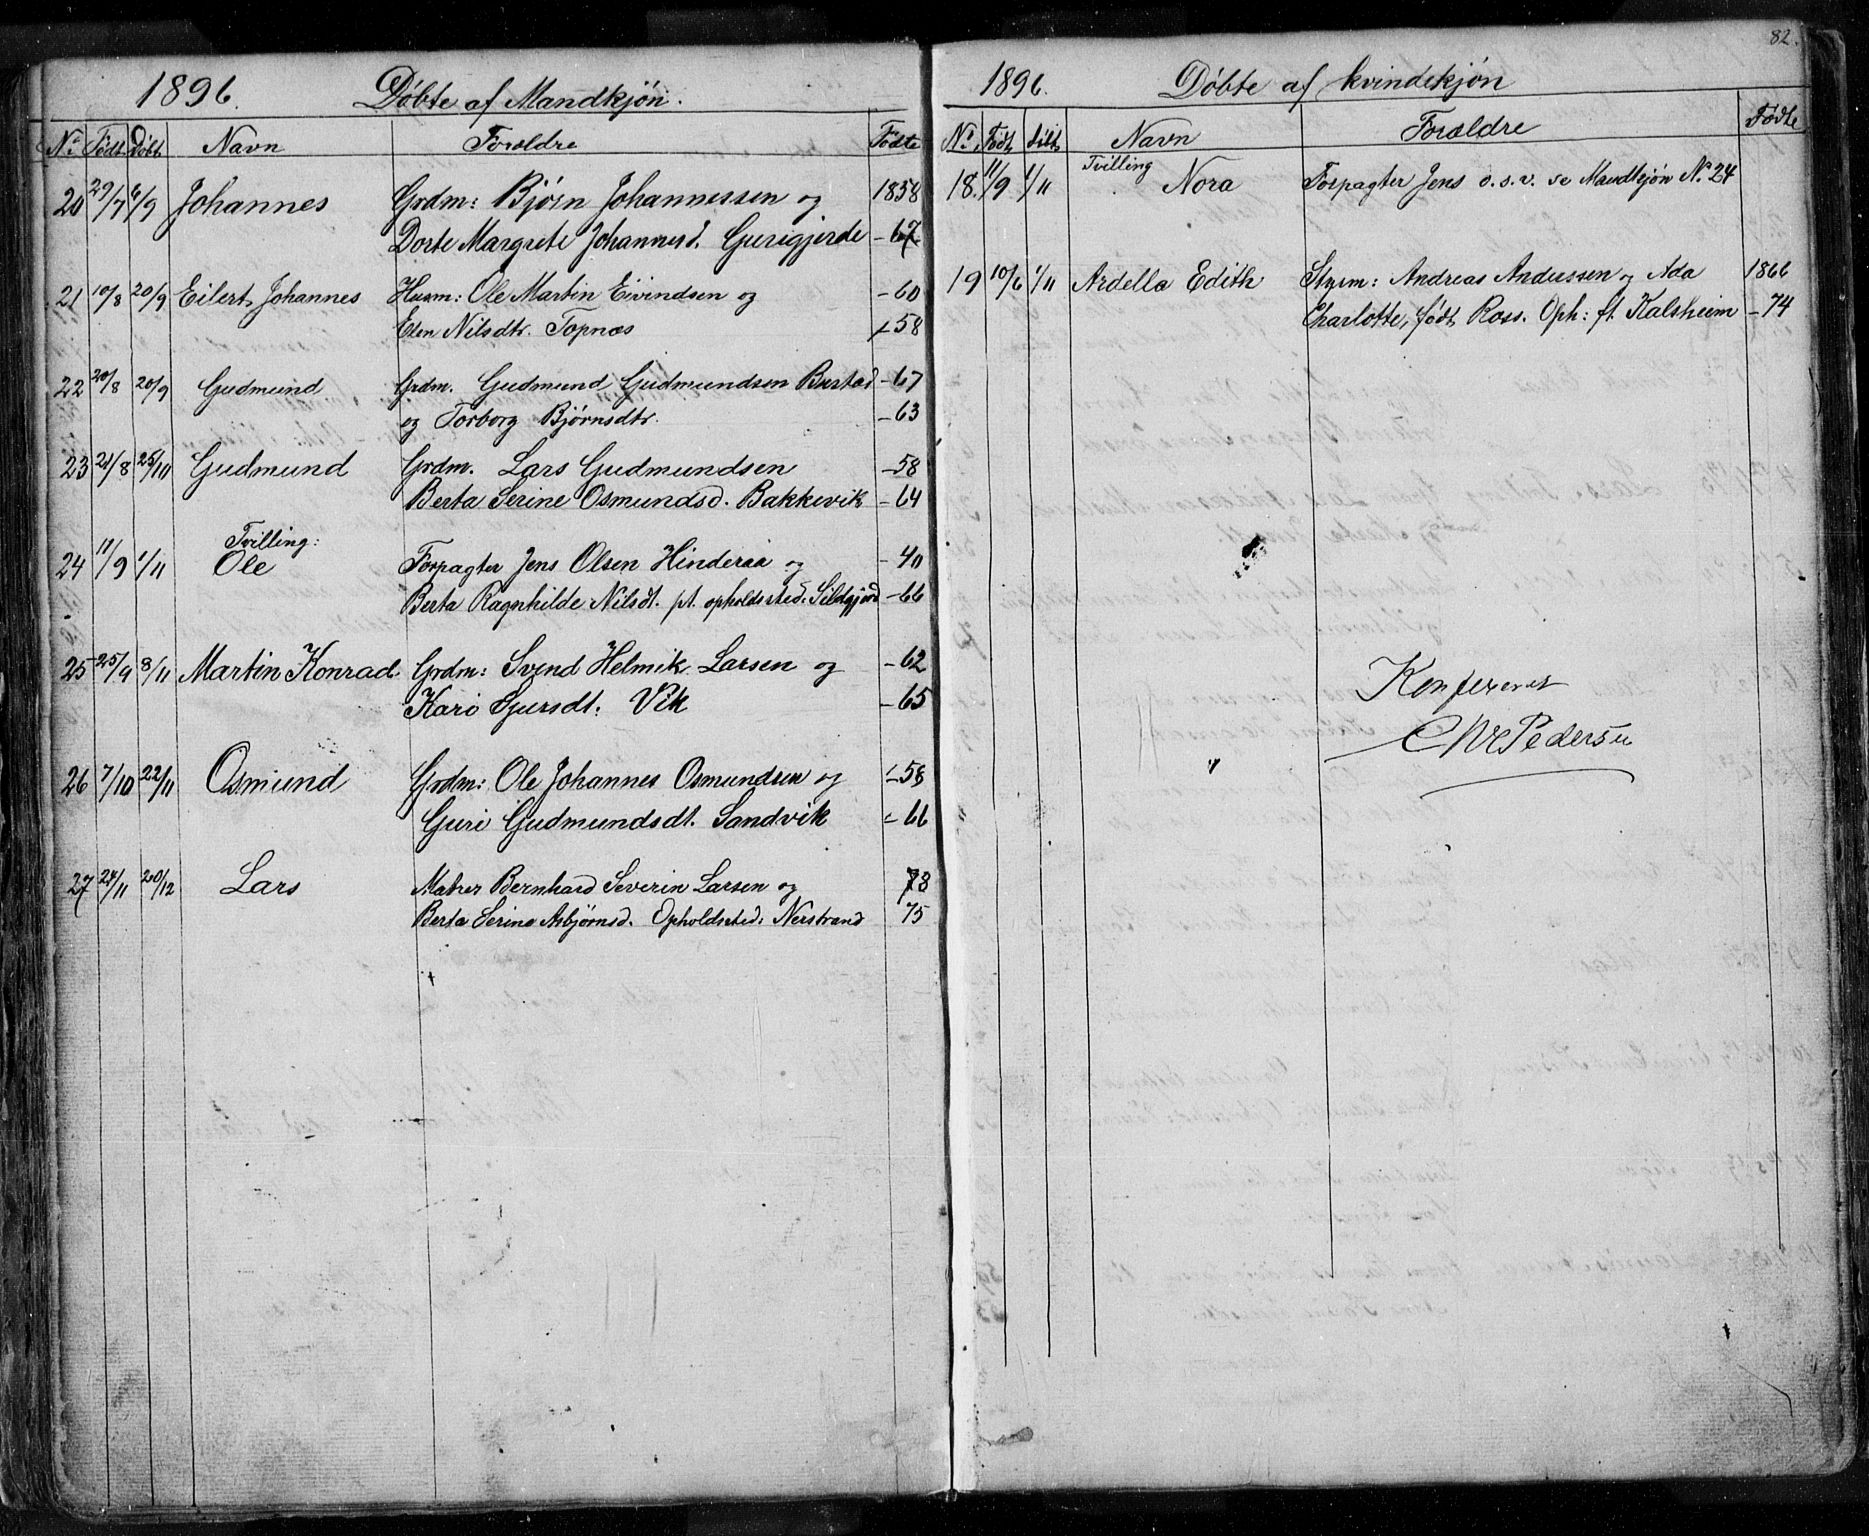 1896. Døbte af Mandkjøn.
No Født Døbt Navn Forældre Fødte
20 29/7 6/9 Johannes Grdm: Bjørn Johannessen og 1858
Dorte Margrete Johannesd. Gurigjerde -67
21 10/8 20/9 Eilert Johannes Husm: Ole Martin Eivindsen og -60
Elen Nilsdtr. Topnæs -58
22 20/8 20/9 Gudmund Grdm. Gudmund Gudmundsen Bustad -67
og Torborg Bjørnsdtr. -63
23 21/8 25/10 Gudmund Grdm. Lars Gudmundsen -58
Berta Serine Osmundsd. Bakkevik -64
Tvilling:
24 11/9 1/11 Ole Forpagter Jens Olsen Hinderaa og -40
Berta Ragnhilde Nilsdt. pt. opholdssted: -66
25 25/9 8/11 Martin Konrad Grdm: Svend Helmik Larsen og -62
Kari Sjursdt. Vik -65
26 7/10 22/11 Osmund Grdm: Ole Johannes Osmundsen og -58
Guri Gudmundsdt. Sandvik -66
27 24/11 20/12 Lars Matros Bernhard Severin Larsen og 73
Berta Serine Asbjørnsd. Opholdssted: Nerstrand 75
82.
1896. Døbte af kvindekjøn
No. Født Døbt Navn Forældre Fødte
Tvilling
18. 11/9 1/11 Nora Forpagter Jens o.s.v. se Mandkjøn No. 24
19 10/6 1/11 Ardella Edith Styrm: Andreas Andersen og Ada 1866
Charlotte, født Ross. Oph: ft. Kalsheim -74
Konfereret
Pedersen